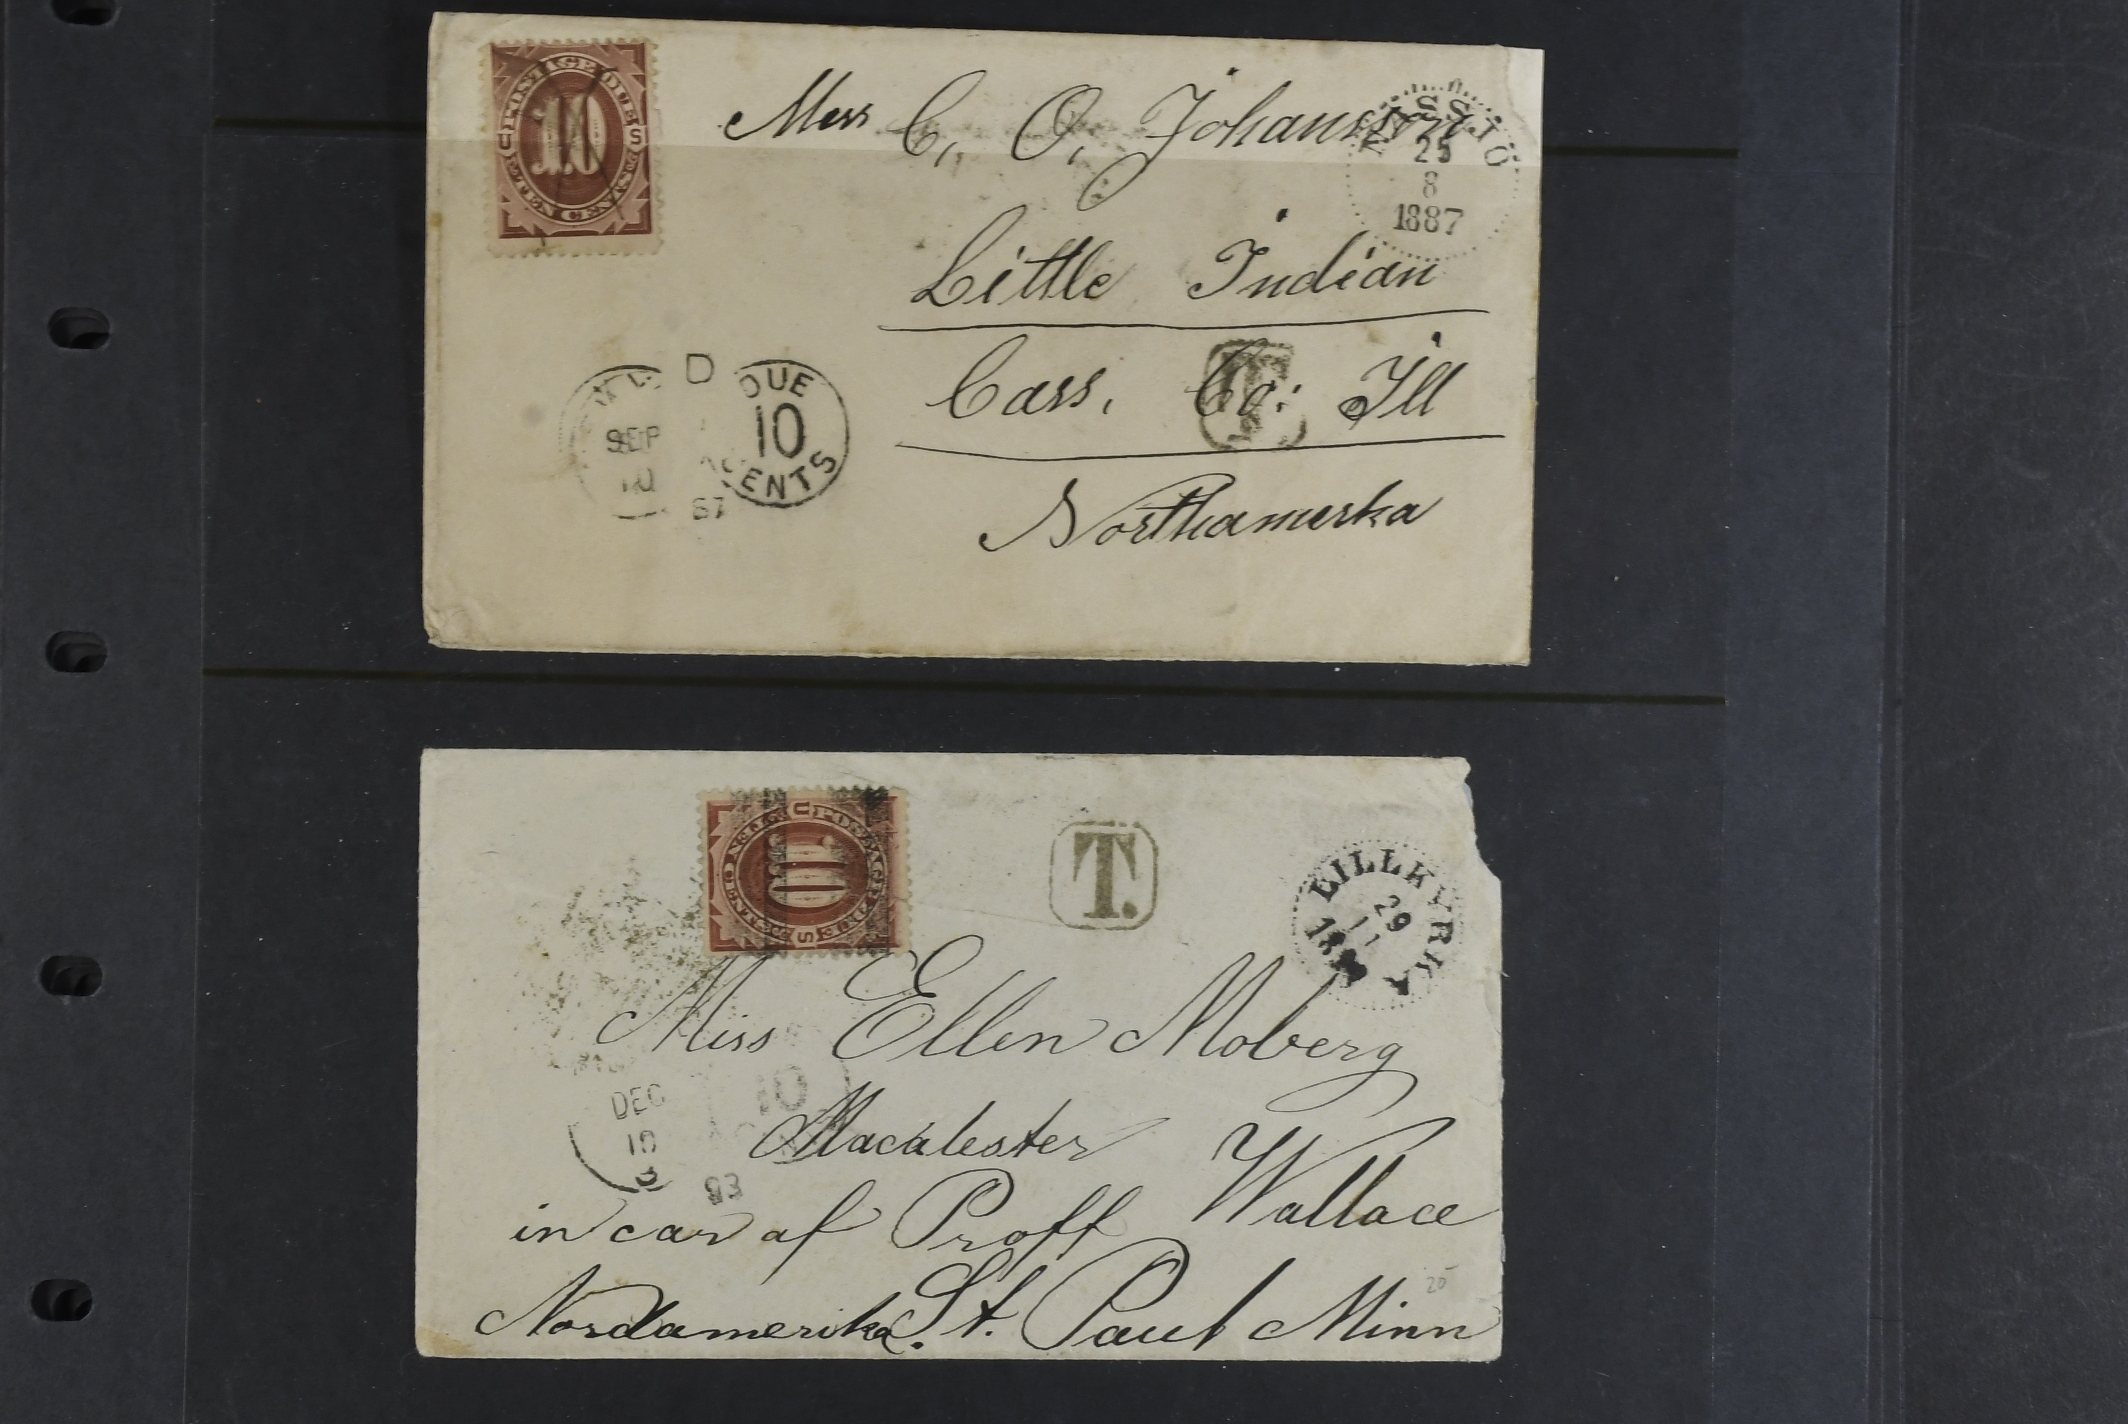 POSTAGE DUE
10
U S
TEN CENTS
Mess C. O. Johansson
NÄSSJÖ
25
8
1887
Little Indian
Cass. Co: Ill
T
Northamerka
D
SEP
10
87
DUE
10
CENTS
POSTAGE DUE
10
U S
TEN CENTS
T.
LILLKYRKA
29
11
Miss Ellen Moberg
DEC
10
93
10
Macalester
in car af Proff Wallace
Nordamerika. St. Paul Minn